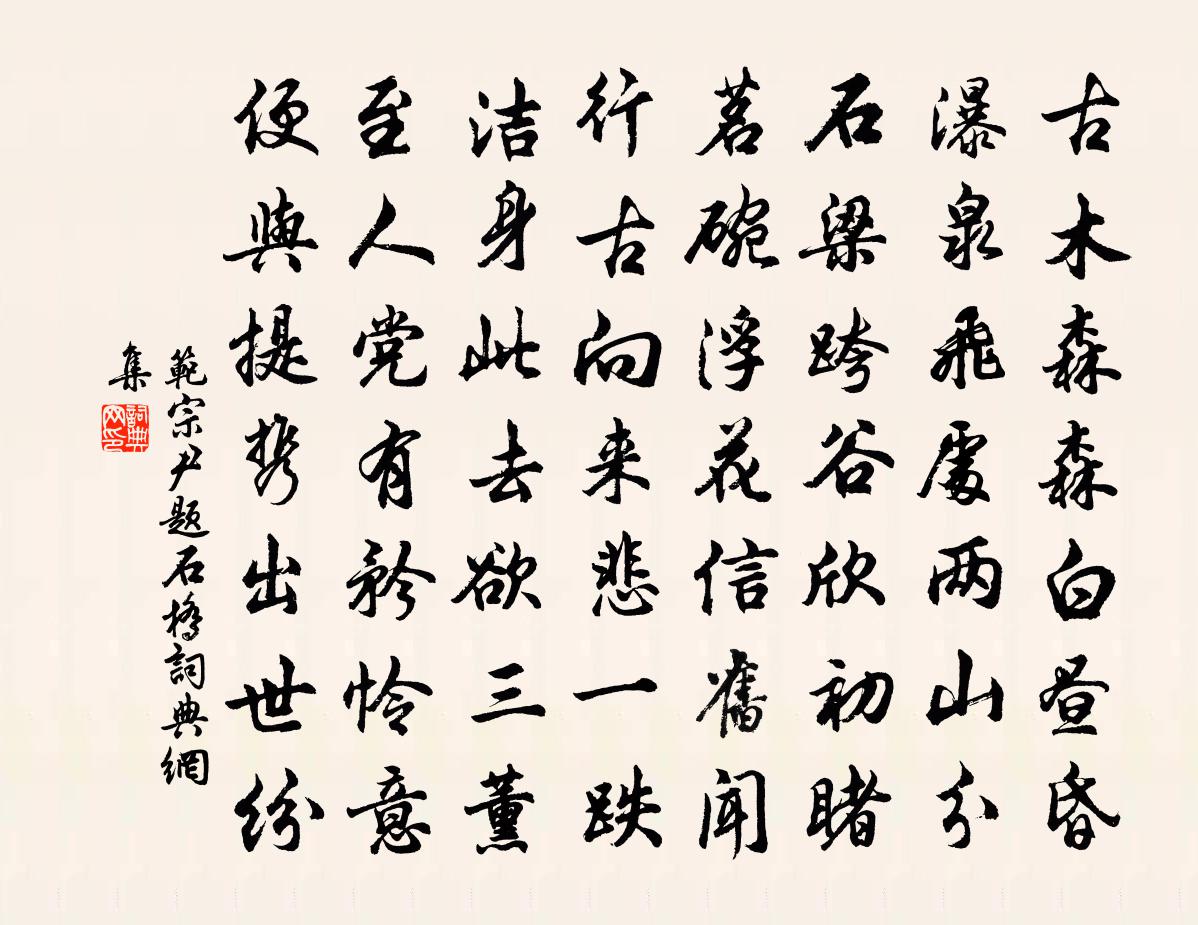 古木森森白昼昏
瀑泉飛處两山分
石梁跨谷欣初睹
茗碗浮花信舊聞
行古向来悲一跌
洁身此去欲三薰
至人党有矜怜意
便與提携出世纷
範宗尹題石橋詞典網
集
詞典
网印